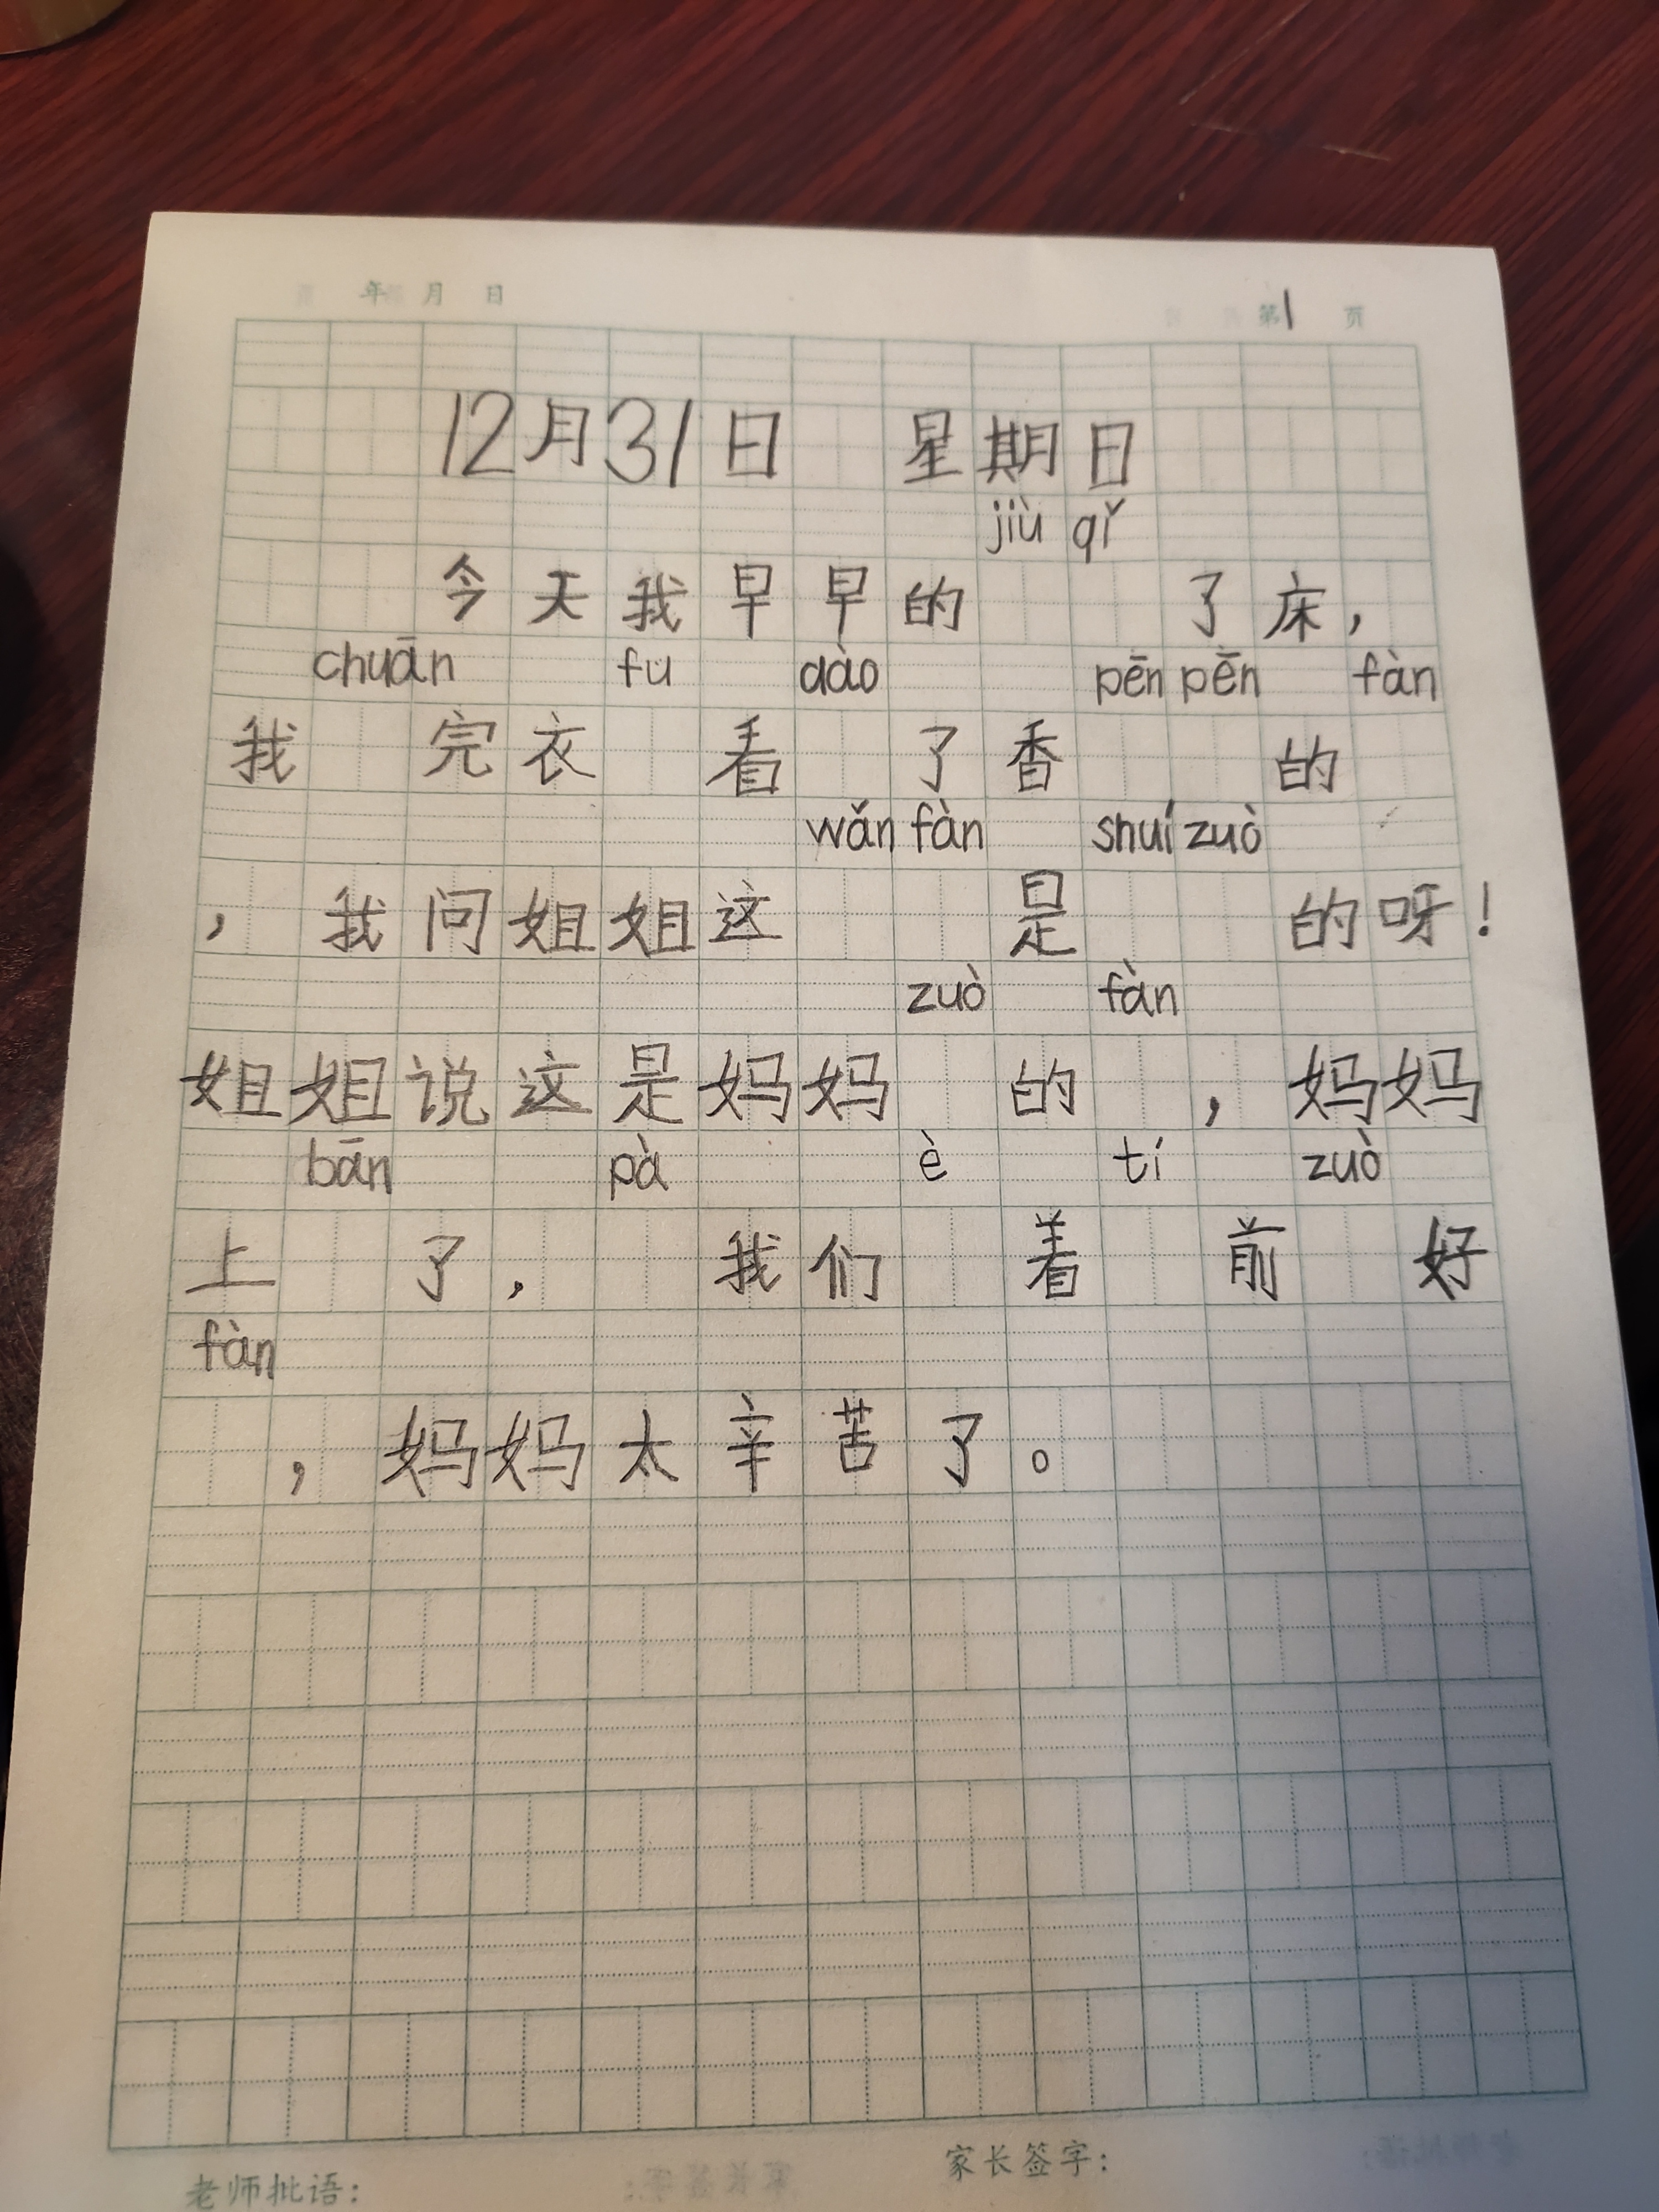 年 月 日
第1 页
12月31日 星期日
jiù qǐ
今天我早早的 了床,
chuān fu dào pēn pēn fàn
我 完衣 看 了香 的
wǎn fàn shuí zuò
，我问姐姐这 是 的呀!
zuò fàn
姐姐说这是妈妈 的 ，妈妈
bān pà è tí zuò
上 了， 我们 着 前 好
fàn
，妈妈太辛苦了。
老师批语: 家长签字: